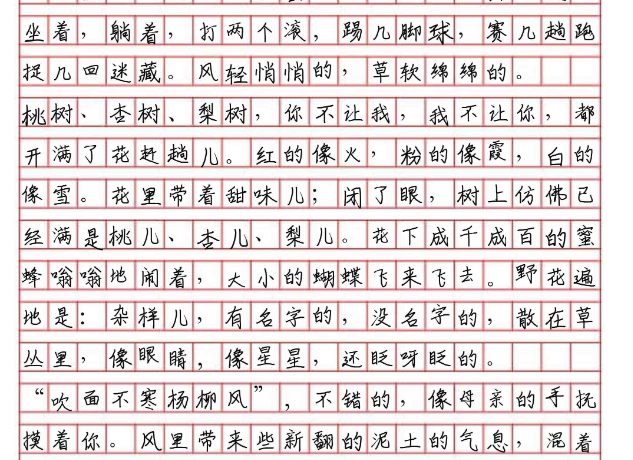 坐着，躺着，打两个滚，踢几脚球，赛几趟跑
捉几回迷藏。风轻悄悄的，草软绵绵的。
桃树、杏树、梨树，你不让我，我不让你，都
开满了花赶趟儿。红的像火，粉的像霞，白的
像雪。花里带着甜味儿；闭了眼，树上仿佛已
经满是桃儿、杏儿、梨儿。花下成千成百的蜜
蜂嗡嗡地闹着，大小的蝴蝶飞来飞去。野花遍
地是：杂样儿，有名字的，没名字的，散在草
丛里，像眼睛，像星星，还眨呀眨的。
“吹面不寒杨柳风”，不错的，像母亲的手抚
摸着你。风里带来些新翻的泥土的气息，混着